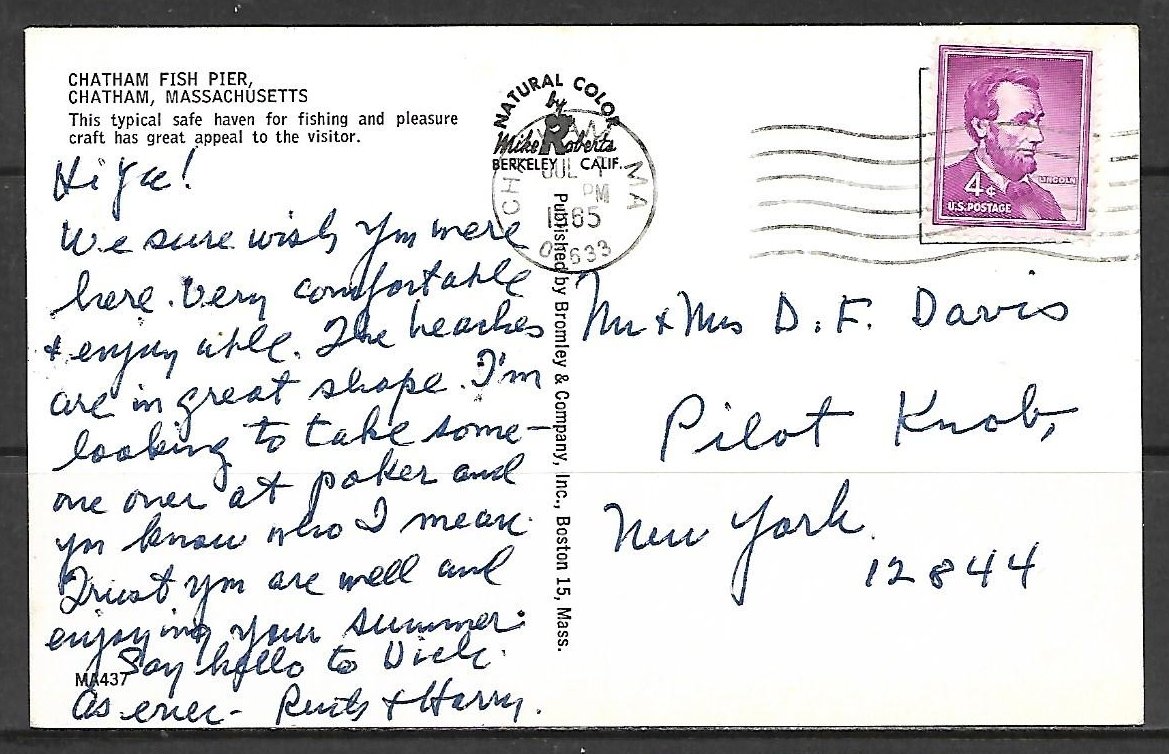 CHATHAM FISH PIER,
CHATHAM, MASSACHUSETTS
This typical safe haven for fishing and pleasure
craft has great appeal to the visitor.
Hi Yu!
We sure wish you were
here. Very comfortable
& enjoy able. The beaches
are in great shape. I'm
looking to take some-
one over at poker and
you know who I mean.
Trust you are well and
enjoying your summer.
Say hello to Dick.
As ever - Ruth & Harry.
MA437
NATURAL COLOR
by
Mike Roberts
BERKELEY CALIF.
Published by Bromley & Company, Inc., Boston 15, Mass.
JUL
PM
1965
02633
MA
LINCOLN
4¢
U.S. POSTAGE
Mr & Mrs D. F. Davis
Pilot Knob,
New York.
12844